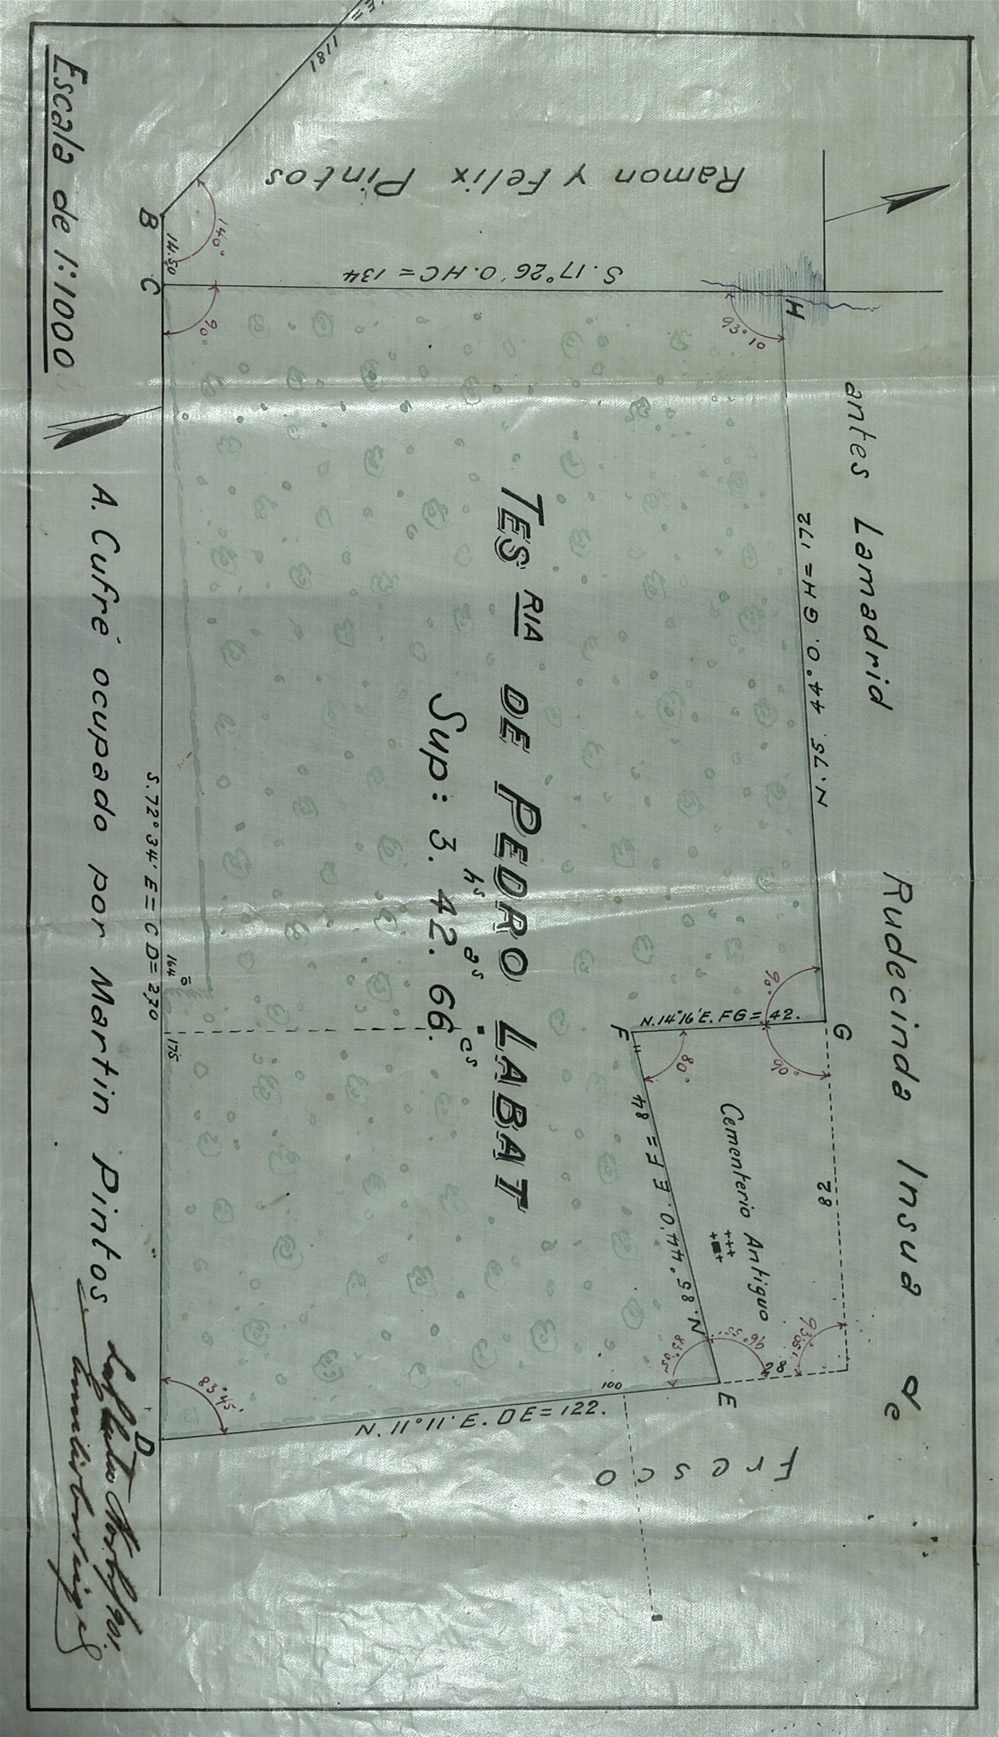 Rudecinda Insua de
antes Lamadrid
Fresco
Ramon y Felix Pintos
TES RIA DE PEDRO LABAT
Sup: 3. hs 42. as 66. cs
Cementerio Antiguo
N. 75 44. O. GH= 172
N. 14°16'E. FG= 42.
N. 85°44'O. EF= 84
N. 11°11'E. DE=122.
S. 17°26'O. HC=134
S. 72°34' E= CD= 2,70
14.50
1181
164
175
100
82
28
140°
90°
93°10
90°
90°
80°
93°05'
96°55
83°05'
83°45'
B
C
D
E
F
G
H
A. Cufré ocupado por Martin Pintos
Escala de 1:1000
La Plata